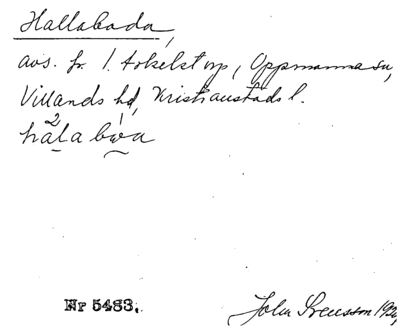 Hallaboda,
avs. fr. 1. Arkelstorp, Oppmanna sn,
Villands hd, Kristianstads l.
Nr 5483.
John Svensson